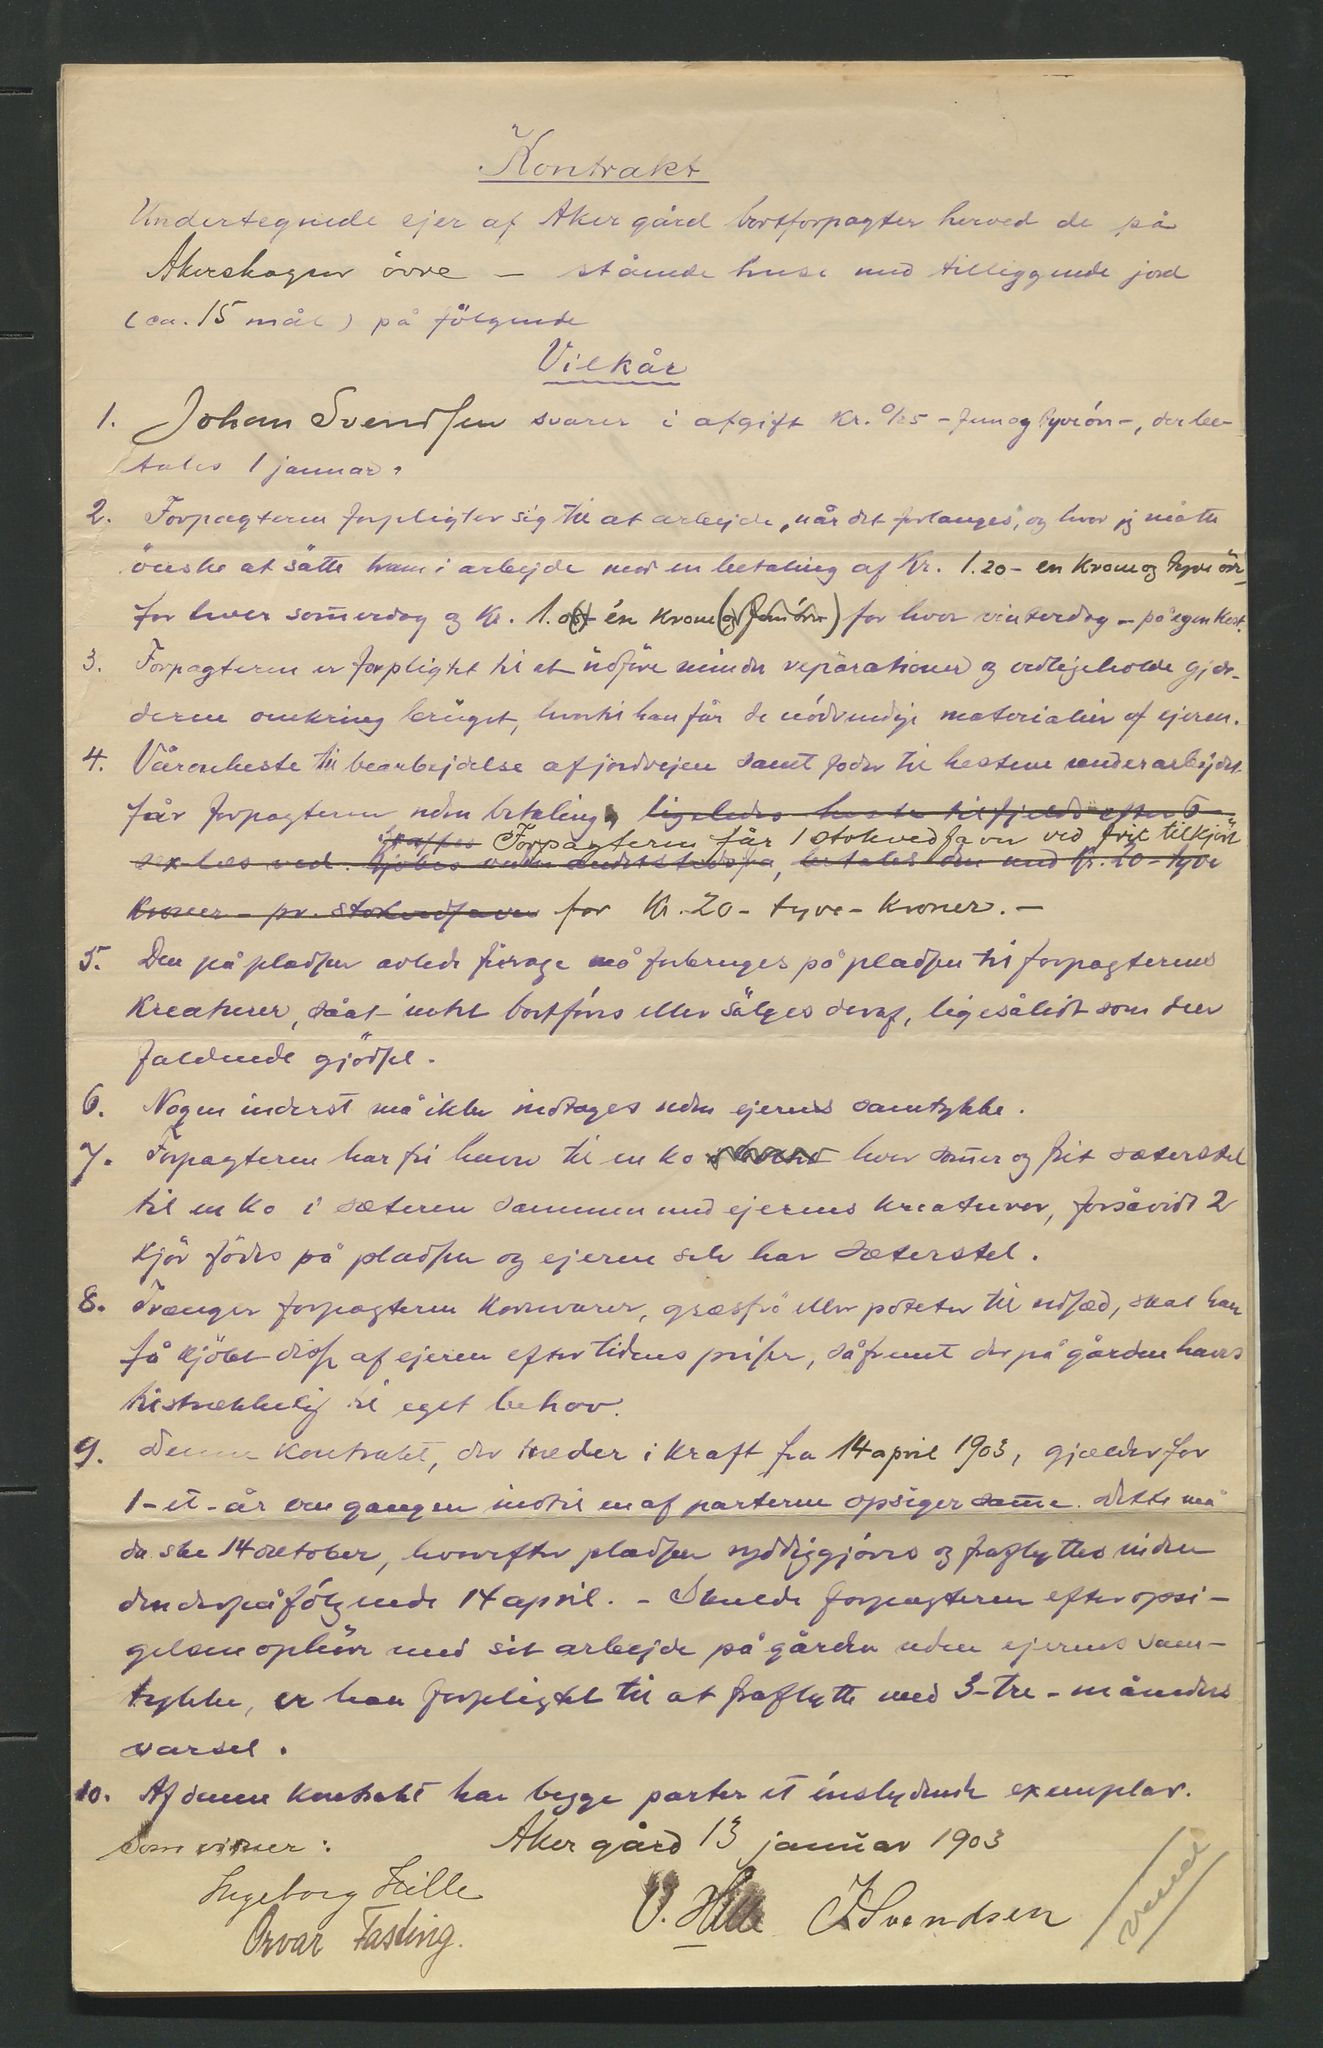 Kontrakt
Undertegnede ejer af Aker gård bortforpagter herved de på
Akerskogen övre – stående huse med tilliggende jord
(ca. 15 mål) på fölgende
Vilkår
1. Johan Svendsen svarer i afgift kr. 0/25 – fem og tyve öre –, der be-
tales 1 januar.
2. Forpagteren forpligter sig til at arbejde, når det forlanges, og hvor jeg måtte
önske at sätte ham i arbejde mod en betaling af Kr. 1.20 – en Krone og tyve öre –
for hver som̄erdag og Kr. 1.05 – én krone (og fem öre) for hver vinterdag – på egen kost.
3. Forpagteren er forpligtet til at ŭdföre mindre reparationer og vedligeholde gjær-
derne omkring brŭget, hvortil han får de nödvendige materialier af ejeren.
4. Våronheste til bearbejdelse af jordvejen samt foder til hestene under arbejdet
får forpagteren uden betaling, ligeledes heste til fjelds efter 6
skaffes Forpagteren får 1 stokvedfavn ved frit tilkjört
sex læs ved. kjöbes veden andetstedsfra, betales den med Kr. 20 – tyve
kroner – pr. stokvedfavn for Kr. 20 – tyve – Kroner. –
5. Den på pladsen avlede fŭrage må forbruges på pladsen til forpagterens
Kreaturer, såat intet bortföres eller sälges deraf, ligesålidt som den
faldende gjödsel.
6. Nogen inderst må ikke indtages uden ejerens samtykke.
7. Forpagteren har fri havn til en ko hver som̄er og frit sæterstel
til en ko i sæteren sammen med ejerens kreaturer, forsåvidt 2
kjör födes på pladsen og ejeren selv har sæterstel.
8. Trænger forpagteren kornvarer, græsfrö eller poteter til udsæd, skal han
få kjöbt disse af ejeren efter tidens priser, såfremt der på gården haves
tilstrækkelig til eget behov.
9. Denne kontrakt, der træder i kraft fra 14 april 1903, gjælder for
1 – et – år om gangen indtil en af parterne opsiger sam̄e. Dette må
da ske 14 oktober, hvorefter pladsen ryddiggjöres og fraflyttes inden
den derpåfölgende 14 april. – Skulde forpagteren efter opsi-
gelsen ophöre med sit arbejde på gården uden ejerens sam-
tykke, er han forpligtet til at fraflytte med 3 – tre – måneders
varsel.
10. Af denne kontrakt har begge parter et énslydende exemplar.
Aker gård 13 januar 1903
Som vitner:
Ingeborg Hille
Orvar Fasting.
V. Hille JSvendsen